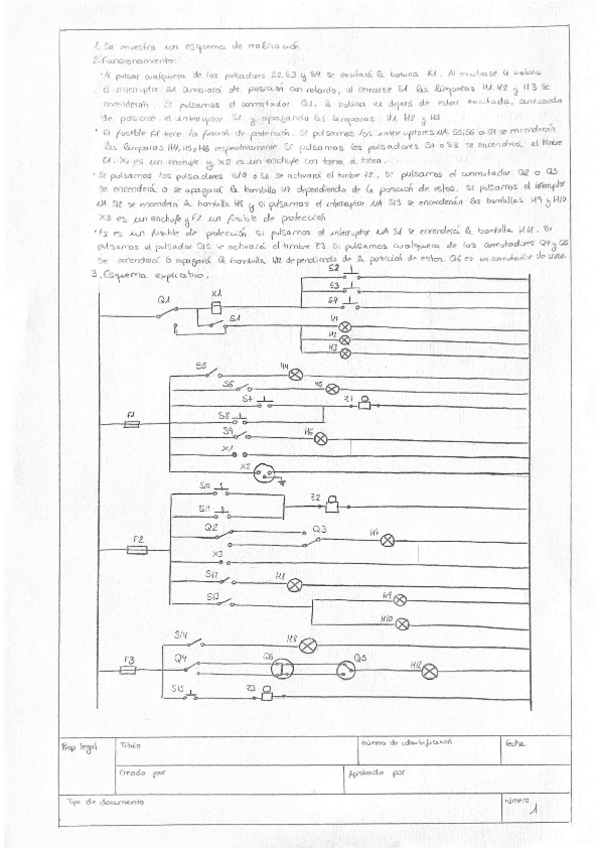 1. Se muestra un esquema de realización
2. Funcionamiento:
· Al pulsar cualquiera de los pulsadores S2, S3 y S4 se excitará la bobina K1. Al excitarse la bobina
El interruptor S1 cambiará de posición con retardo, al cerrarse S1 las lámparas H1, H2 y H3 se
encenderán. Si pulsamos el conmutador Q1, la bobina K1 dejará de estar excitada, cambiando
de posición el interruptor S1 y apagando las lámparas H1, H2 y H3
· El fusible F1 tiene la función de protección. Si pulsamos los interruptores NA S5, S6 o S9 se encenderán
las lámparas H4, H5 y H6 respectivamente. Si pulsamos los pulsadores S7 o S8 se encenderá el timbre
Z1. X1 es un enchufe y X2 es un enchufe con toma a tierra.
· Si pulsamos los pulsadores S10 o S11 se activará el timbre Z2. Si pulsamos el conmutador Q2 o Q3
se encenderá o se apagará la bombilla H7 dependiendo de la posición de estos. Si pulsamos el interruptor
NA S12 se encenderá la bombilla H8 y si pulsamos el interruptor NA S13 se encenderán las bombillas H9 y H10
X3 es un enchufe y F2 un fusible de protección
· F3 es un fusible de protección si pulsamos el interruptor NA se encenderá la bombilla H11. Si
pulsamos el pulsador S15 se activará el timbre Z3. Si pulsamos cualquiera de los conmutadores Q4 y Q5
se encenderá o apagará la bombilla H12 dependiendo de la posición de estos. Q6 es un conmutador de cruce.
3. Esquema explicativo.
S2
K1
S3
Q1
S4
S1
H1
H2
H3
S5
H4
S6
H5
S7
Z1
F1
S8
S9
H6
X1
X2
S10
Z2
S11
Q2
Q3
H7
F2
X3
S12
H8
H9
S13
H10
S14
H8
F3
Q4
Q6
Q5
H12
S15
Z3
Prop legal
Título
Número de identificación
Fecha
Creado por
Aprobado por
Tipo de documento
Número
1